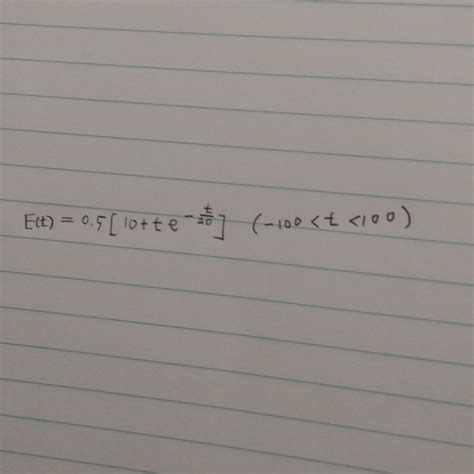 E(t) = 0.5[10+te^{-\frac{t}{20}}] (-100<t<100)